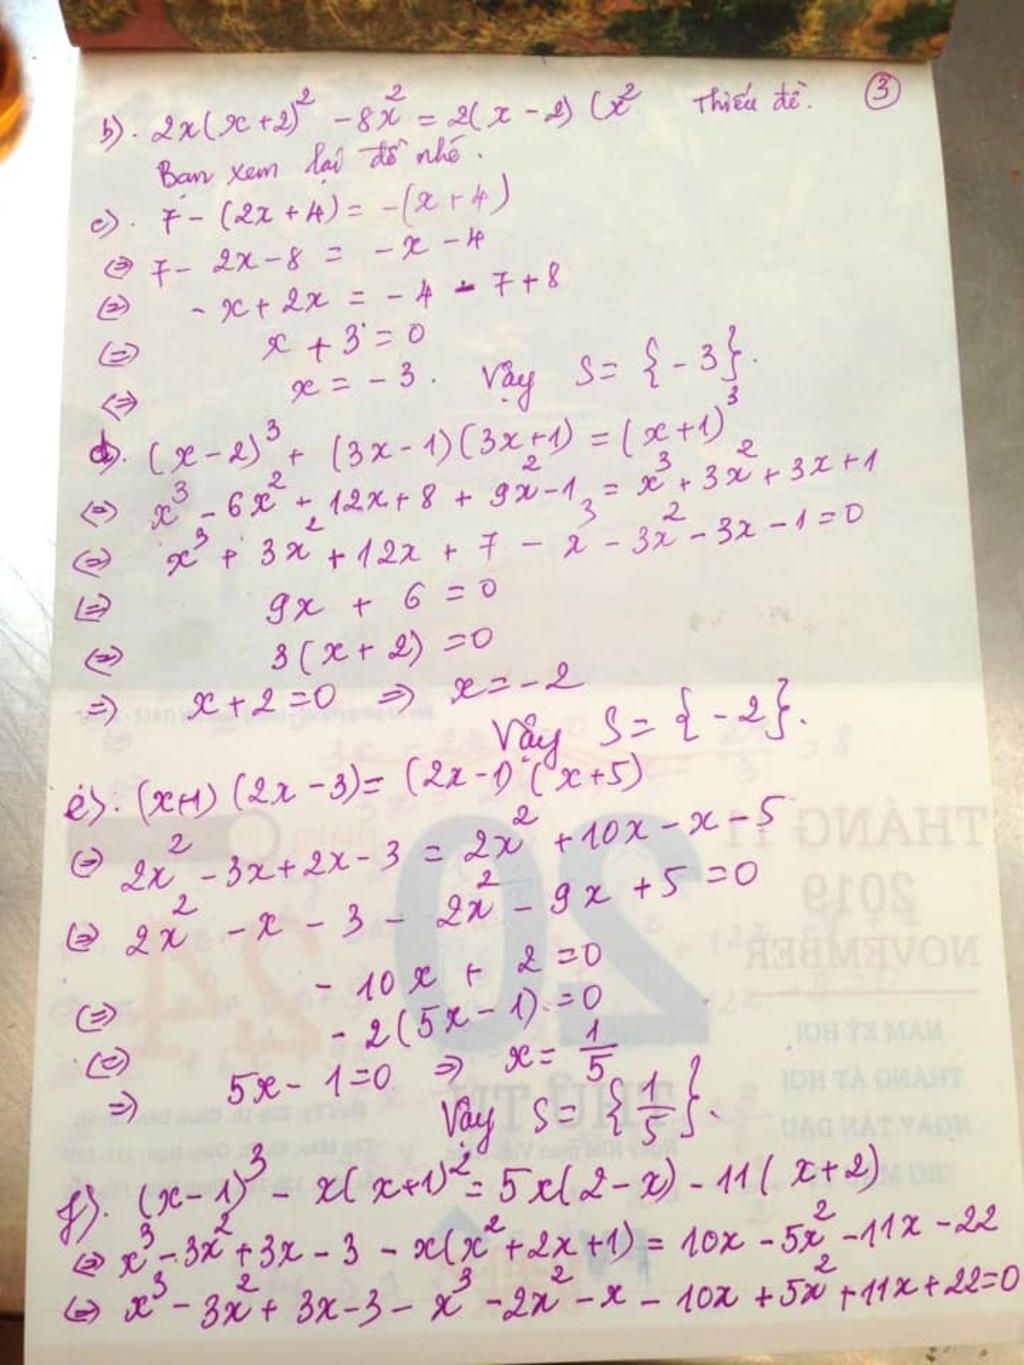 b). 2x(x+2)² - 8x² = 2(x-2) (x² Thiếu đề. ③
Bạn xem lại đề nhé.
c). 7 - (2x+4) = -(x+4)
⇔ 7 - 2x - 8 = -x - 4
⇔ -x + 2x = -4 - 7 + 8
⇔ x + 3 = 0
⇔ x = -3. Vậy S = {-3}.
d). (x-2)³ + (3x-1)(3x+1) = (x+1)³
⇔ x³ - 6x² + 12x + 8 + 9x² - 1 = x³ + 3x² + 3x + 1
⇔ x³ + 3x² + 12x + 7 - x³ - 3x² - 3x - 1 = 0
⇔ 9x + 6 = 0
⇔ 3(x+2) = 0
⇒ x + 2 = 0 ⇒ x = -2
Vậy S = {-2}.
e). (x+1)(2x-3) = (2x-1)(x+5)
⇔ 2x² - 3x + 2x - 3 = 2x² + 10x - x - 5
⇔ 2x² - x - 3 - 2x² - 9x + 5 = 0
⇔ -10x + 2 = 0
⇔ -2(5x-1) = 0
⇒ 5x - 1 = 0 ⇒ x = 1/5
Vậy S = {1/5}.
f). (x-1)³ - x(x+1)² = 5x(2-x) - 11(x+2)
⇔ x³ - 3x² + 3x - 3 - x(x² + 2x + 1) = 10x - 5x² - 11x - 22
⇔ x³ - 3x² + 3x - 3 - x³ - 2x² - x - 10x + 5x² + 11x + 22 = 0
THÁNG 11
2019
NOVEMBER
20
24
NĂM KỶ HỢI
THÁNG ẤT HỢI
NGÀY TÂN DẬU
THỨ TƯ